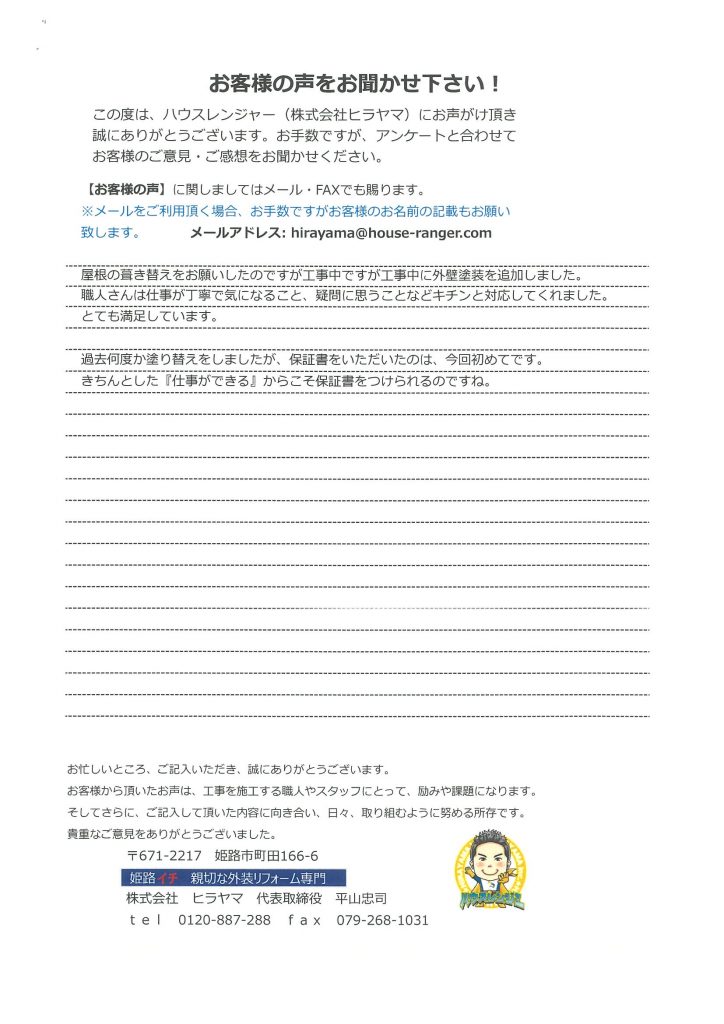 お客様の声をお聞かせ下さい！
この度は、ハウスレンジャー（株式会社ヒラヤマ）にお声がけ頂き
誠にありがとうございます。お手数ですが、アンケートと合わせて
お客様のご意見・ご感想をお聞かせください。
【お客様の声】に関しましてはメール・FAXでも賜ります。
※メールをご利用頂く場合、お手数ですがお客様のお名前の記載もお願い
致します。　メールアドレス: hirayama@house-ranger.com
屋根の葺き替えをお願いしたのですが工事中ですが工事中に外壁塗装を追加しました。
職人さんは仕事が丁寧で気になること、疑問に思うことなどキチンと対応してくれました。
とても満足しています。
過去何度か塗り替えをしましたが、保証書をいただいたのは、今回初めてです。
きちんとした『仕事ができる』からこそ保証書をつけられるのですね。
お忙しいところ、ご記入いただき、誠にありがとうございます。
お客様から頂いたお声は、工事を施工する職人やスタッフにとって、励みや課題になります。
そしてさらに、ご記入して頂いた内容に向き合い、日々、取り組むように努める所存です。
貴重なご意見をありがとうございました。
〒671-2217　姫路市町田166-6
姫路イチ　親切な外装リフォーム専門
株式会社　ヒラヤマ　代表取締役　平山忠司
ｔｅｌ　0120-887-288　ｆａｘ　079-268-1031
ハウスレンジャー